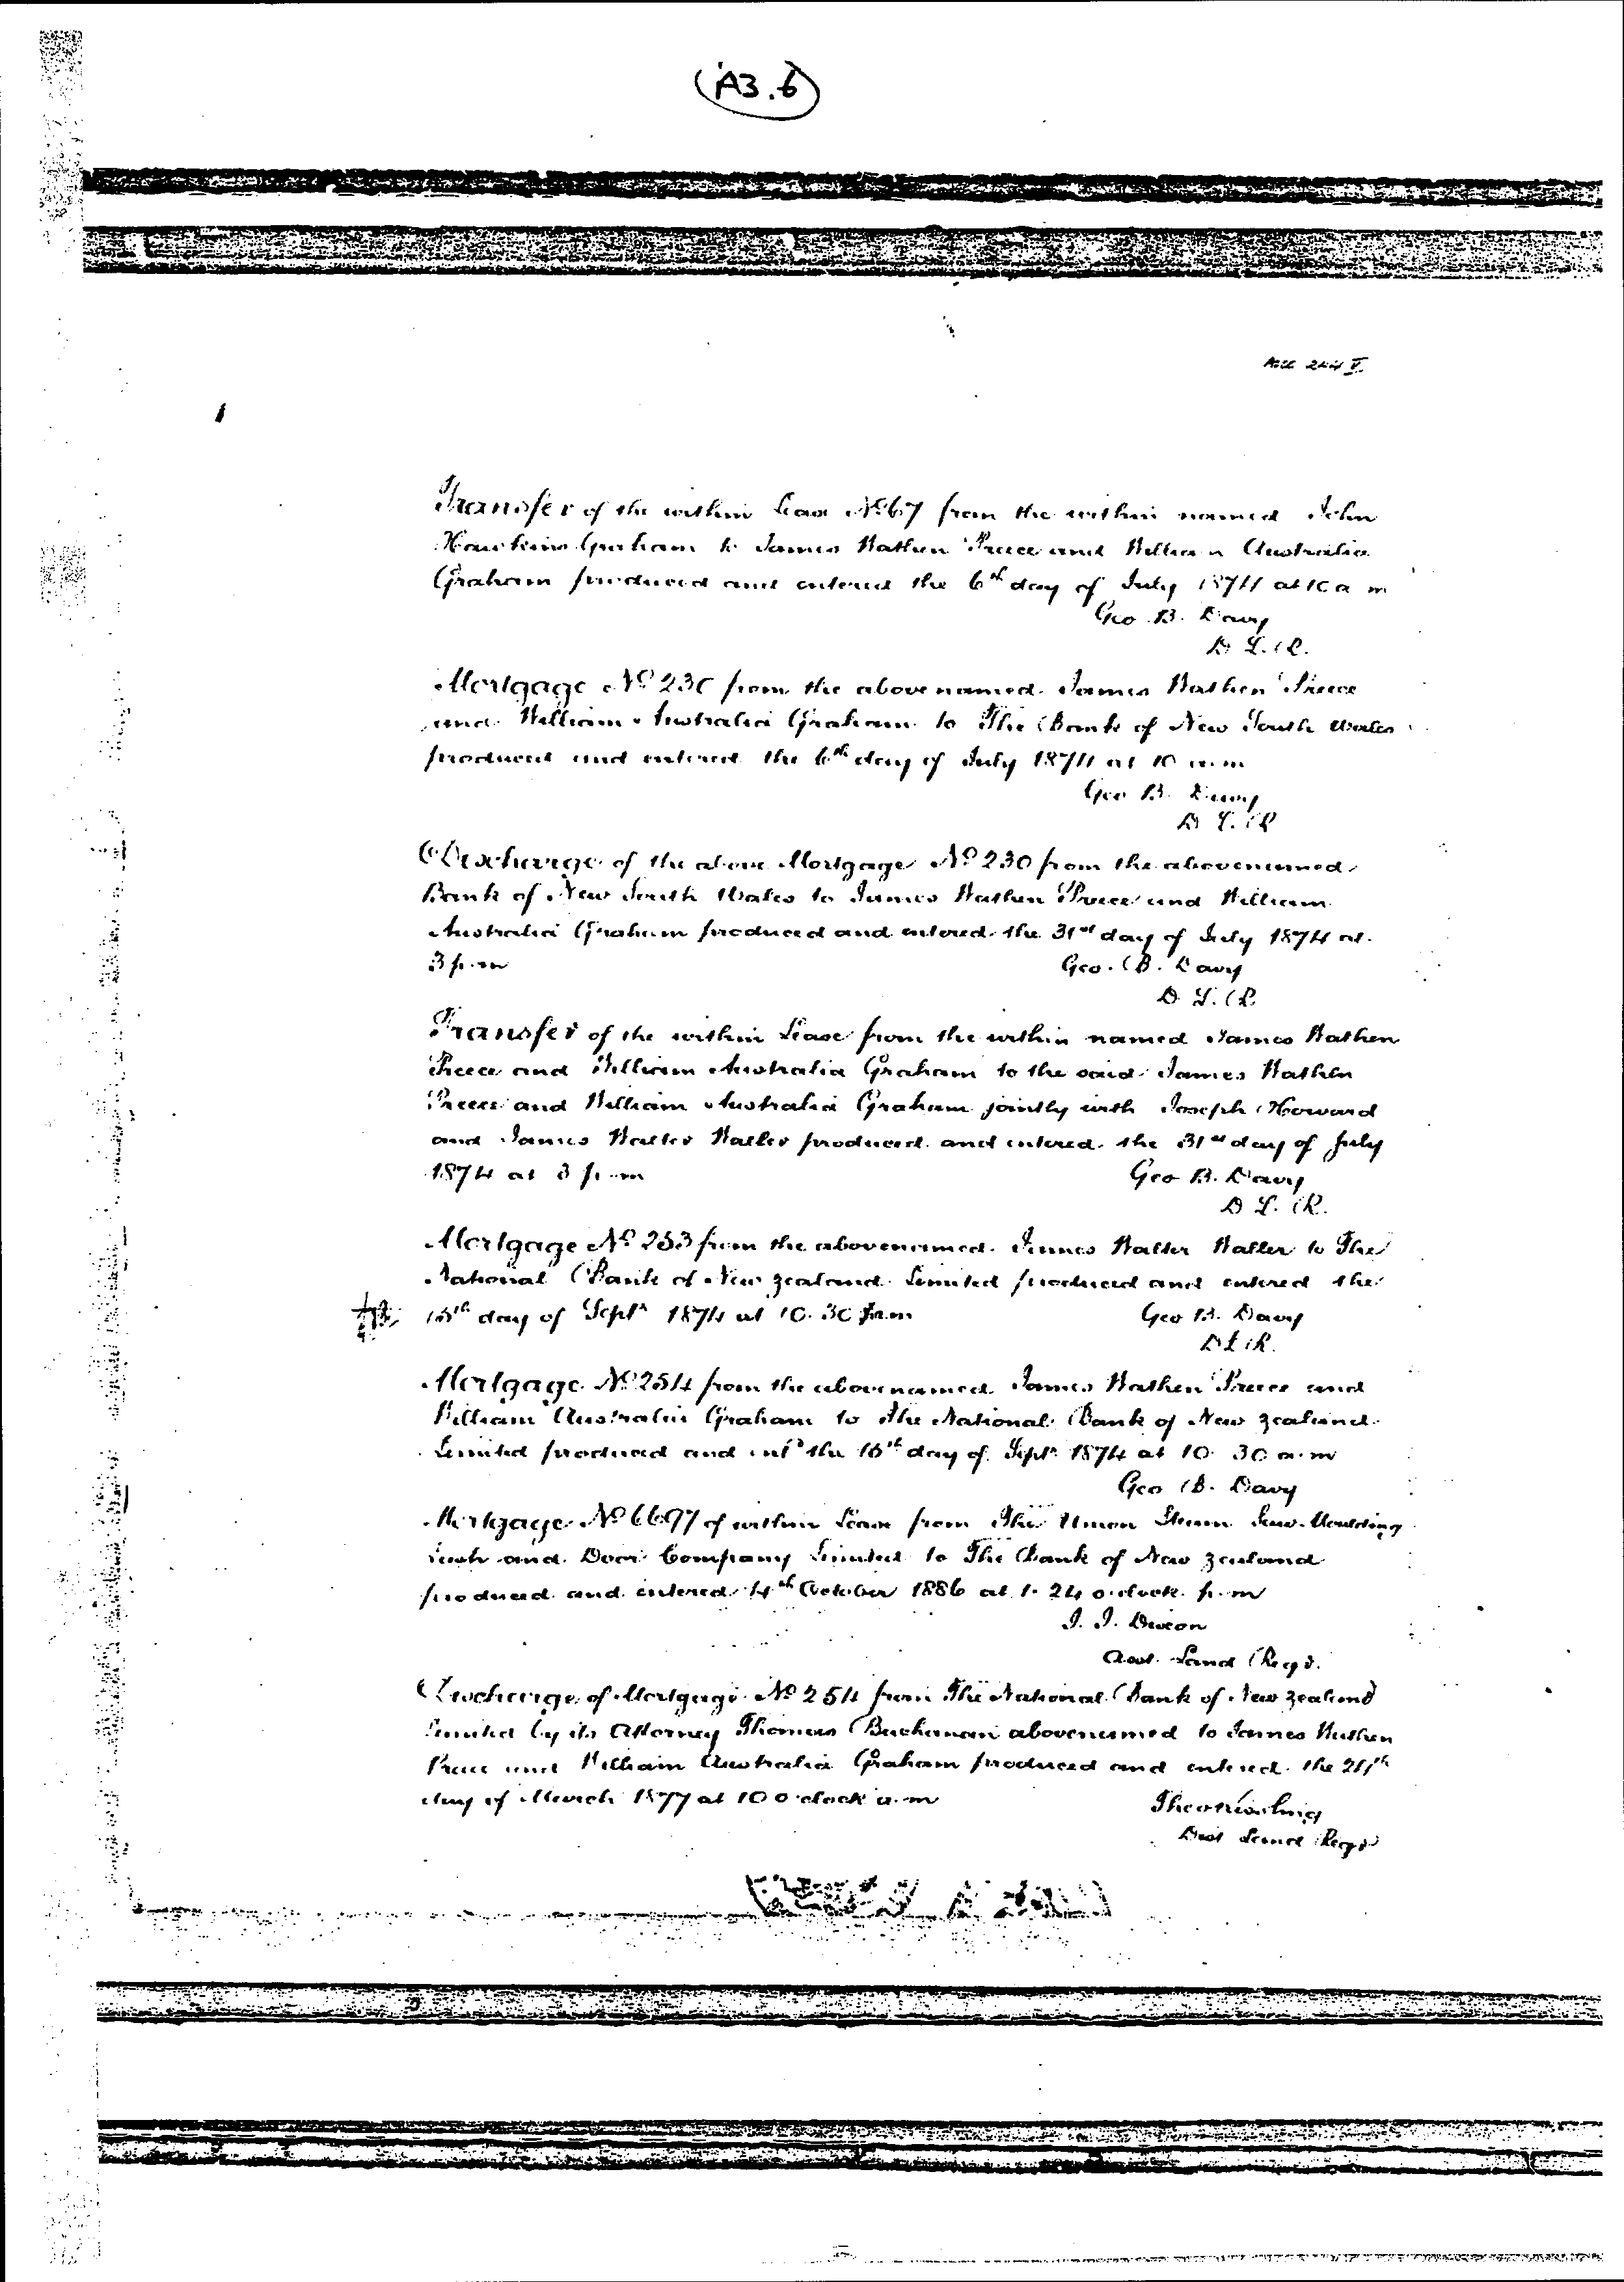 A3.6
Transfer of the within Lease No 67 from the within named John
Hawkins Graham to James Wathen Preece and William Australia
Graham produced and entered the 6th day of July 1874 at 10 a m
Geo. B. Davy
D. L. R.
Mortgage No 230 from the abovenamed James Wathen Preece
and William Australia Graham to The Bank of New South Wales
produced and entered the 6th day of July 1874 at 10 a.m
Geo B. Davy
D L. R
Discharge of the above Mortgage No 230 from the abovenamed
Bank of New South Wales to James Wathen Preece and William
Australia Graham produced and entered the 31st day of July 1874 at
3 p.m
Geo. B. Davy
D. L. R
Transfer of the within Lease from the within named James Wathen
Preece and William Australia Graham to the said James Wathen
Preece and William Australia Graham jointly with Joseph Howard
and James Walter Waller produced and entered the 31st day of July
1874 at 3 p.m
Geo B. Davy
D L. R.
Mortgage No 253 from the abovenamed James Walter Waller to The
National Bank of New Zealand Limited produced and entered the
15th day of Sept 1874 at 10. 30 a.m
Geo B. Davy
D L R.
Mortgage No 254 from the abovenamed James Wathen Preece and
William Australia Graham to the National Bank of New Zealand
Limited produced and entd the 15th day of Sept 1874 at 10. 30 a.m
Geo B. Davy
Mortgage No 6697 of within Lease from The Union Steam Saw Moulding
Sash and Door Company Limited to The Bank of New Zealand
produced and entered 4th October 1886 at 1. 24 o'clock p.m
Asst. Land Regr.
Discharge of Mortgage No 254 from The National Bank of New Zealand
Limited by its Attorney Thomas Buchanan abovenamed to James Wathen
Preece and William Australia Graham produced and entered the
day of March 1877 at 10 o'clock a.m
Theo Kissling
Dist Land Regr